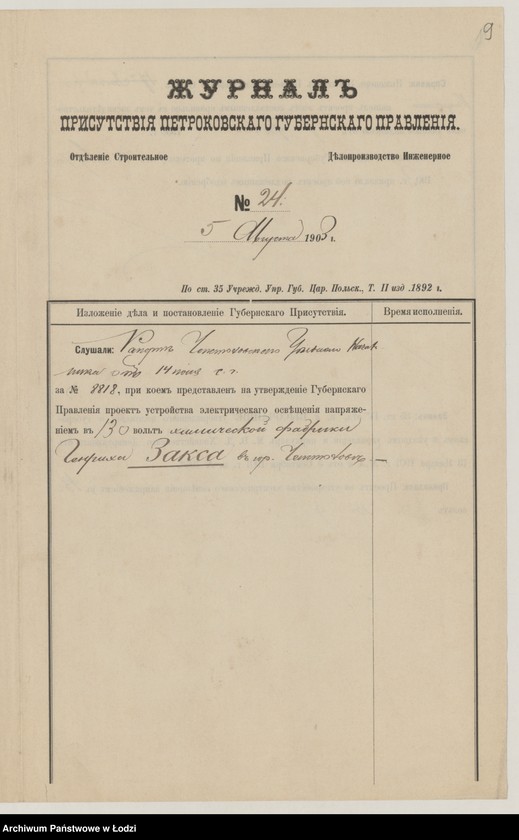 9
ЖУРНАЛЪ
ПРИСУТСТВІЯ ПЕТРОКОВСКАГО ГУБЕРНСКАГО ПРАВЛЕНІЯ.
Отдѣленіе Строительное Дѣлопроизводство Инженерное
№ 24.
5 Августа 1903 г.
По ст. 35 Учрежд. Упр. Губ. Цар. Польск., Т. II изд .1892 г.
Изложеніе дѣла и постановленіе Губернскаго Присутствія. Время исполненія.
Слушали: Рапортъ Ченстоховскаго Уѣзднаго Началь
ника отъ 14 г.
за № 8818, при коемъ представленъ на утвержденіе Губернскаго
Правленія проектъ устройства электрическаго освѣщенія напряже-
ніемъ въ 130 вольтъ химической фабрики
Генриха Закса въ гор. Ченстоховѣ. —
Archiwum Państwowe w Łodzi